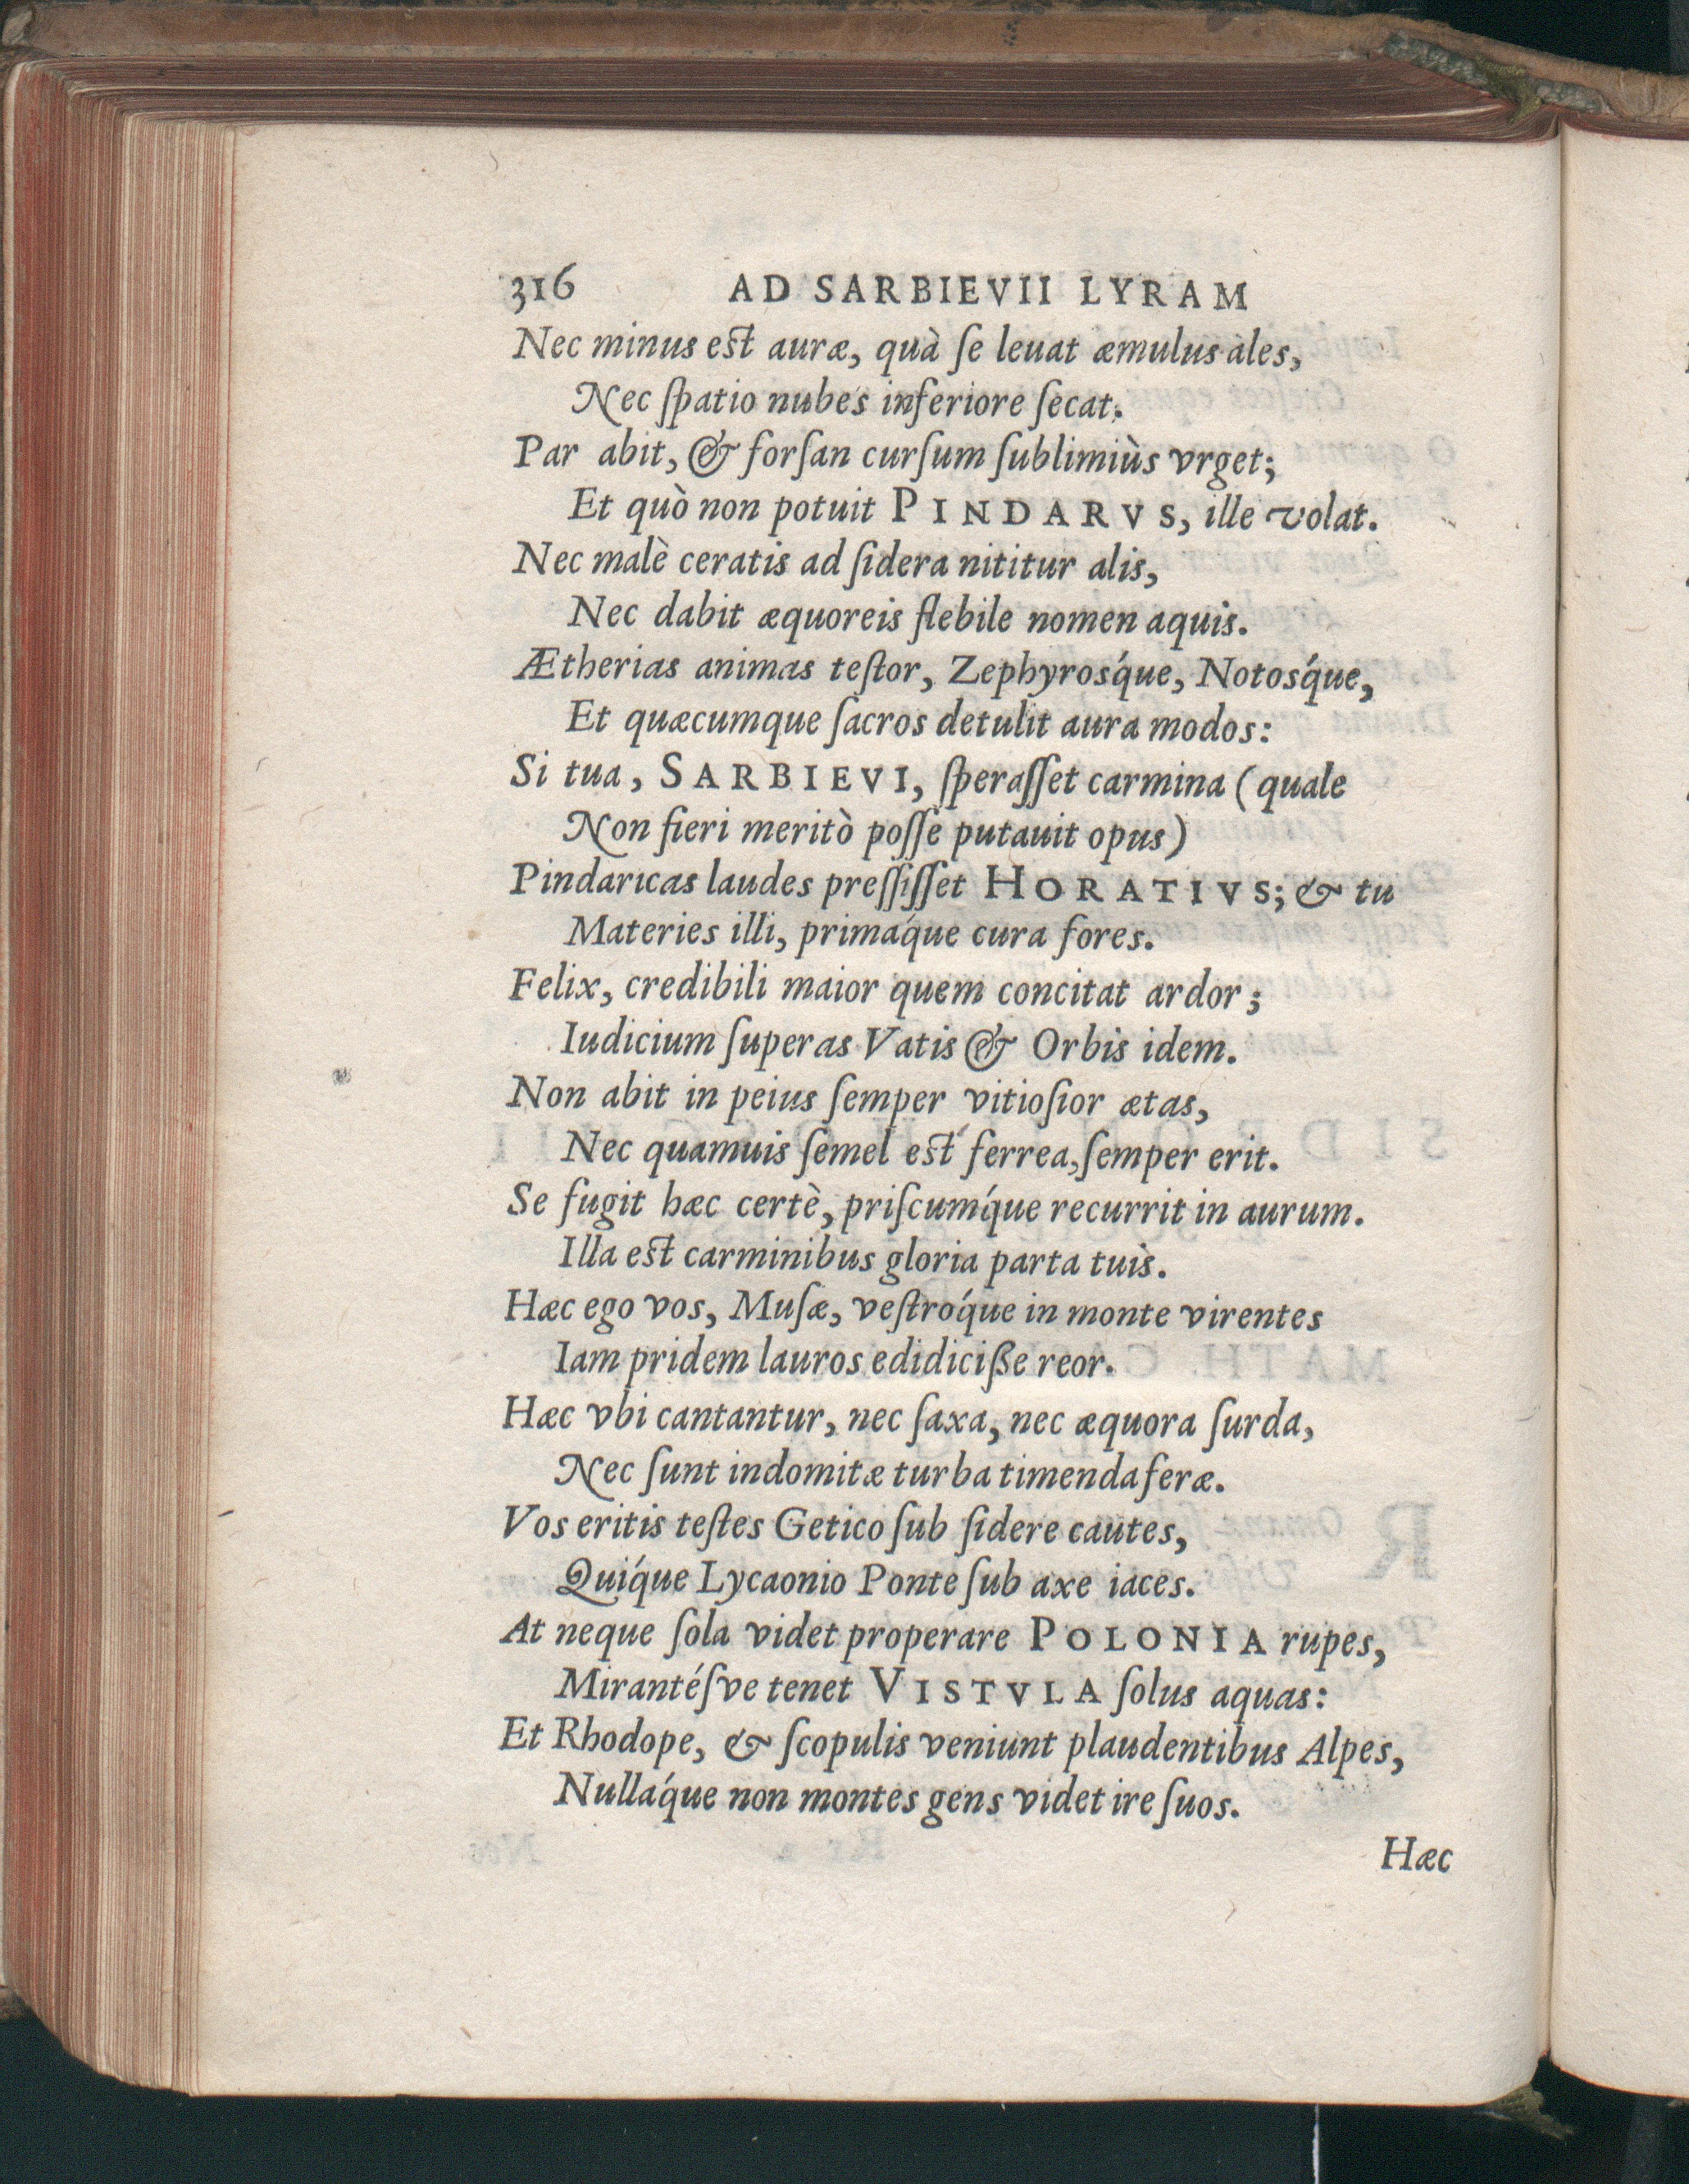 316 AD SARBIEVII LYRAM
Nec minus est auræ, quà ſe leuat æmulus ales,
Nec ſpatio nubes inferiore ſecat.
Par abit, & forſan curſum ſublimiùs vrget;
Et quò non potuit PINDARVS, ille volat.
Nec malè ceratis ad ſidera nititur alis,
Nec dabit æquoreis flebile nomen aquis.
Ætherias animas teſtor, Zephyrosq́ue, Notosq́ue,
Et quæcumque ſacros detulit aura modos:
Si tua, SARBIEVI, ſperaſſet carmina (quale
Non fieri meritò poſſe putauit opus)
Pindaricas laudes preſſiſſet HORATIVS; & tu
Materies illi, primaq́ue cura fores.
Felix, credibili maior quem concitat ardor;
Iudicium ſuperas Vatis & Orbis idem.
Non abit in peius ſemper vitioſior ætas,
Nec quamuis ſemel est ferrea, ſemper erit.
Se fugit hæc certè, priſcumq́ue recurrit in aurum.
Illa est carminibus gloria parta tuis.
Hæc ego vos, Muſæ, veſtroq́ue in monte virentes
Iam pridem lauros edidiciße reor.
Hæc vbi cantantur, nec ſaxa, nec æquora ſurda,
Nec ſunt indomitæ turba timenda feræ.
Vos eritis teſtes Getico ſub ſidere cautes,
Quiq́ue Lycaonio Ponte ſub axe iaces.
At neque ſola videt properare POLONIA rupes,
Mirantéſve tenet VISTVLA ſolus aquas:
Et Rhodope, & ſcopulis veniunt plaudentibus Alpes,
Nullaq́ue non montes gens videt ire ſuos.
Hæc